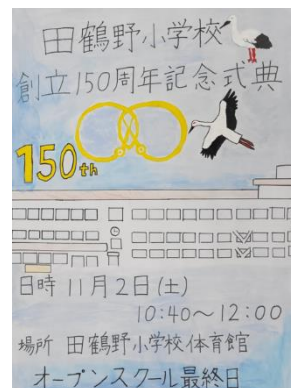 田鶴野小学校
創立150周年記念式典
150th
日時 11月2日(土)
10:40〜12:00
場所 田鶴野小学校体育館
オープンスクール最終日